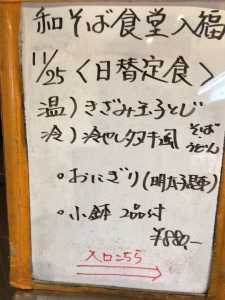 和そば食堂入福
11/25 〈日替定食〉
温) きざみ玉子とじ
冷) 冷やしタヌキ風 そば・うどん
・おにぎり(明太子)
・小鉢 2品付
¥880,-
入口こちら